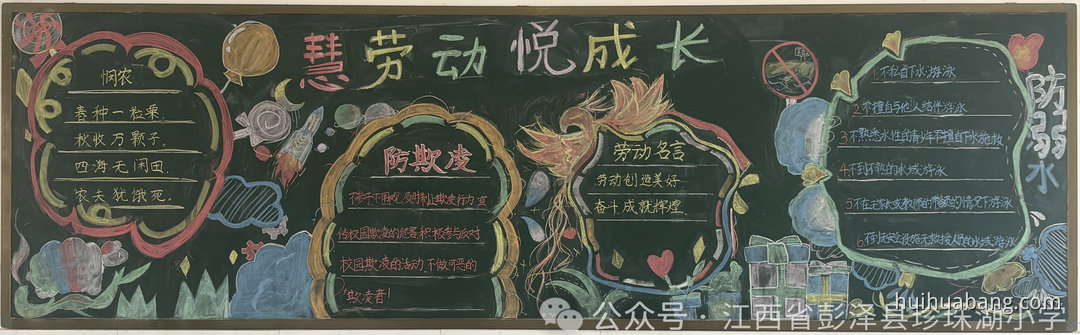 慧劳动悦成长
悯农
春种一粒粟,
秋收万颗子。
四海无闲田,
农夫犹饿死。
防欺凌
不参于不围观,及时制止欺凌行为,宣
传校园欺凌的危害积极参与反对
校园欺凌的活动,不做可恶的
"欺凌者!
劳动名言
劳动创造美好
奋斗成就辉煌
防溺水
1.不私自下水游泳
2.不擅自与他人结伴游泳
3.不熟悉水性的青少年不擅自下水施救
4.不到不熟的水域游泳
5.不在无家长或教师的带领的情况下游泳
6.不到无安全设施无救援人员的水域游泳
huihuabang.com
公众号·江西省彭泽县珍珠湖小学